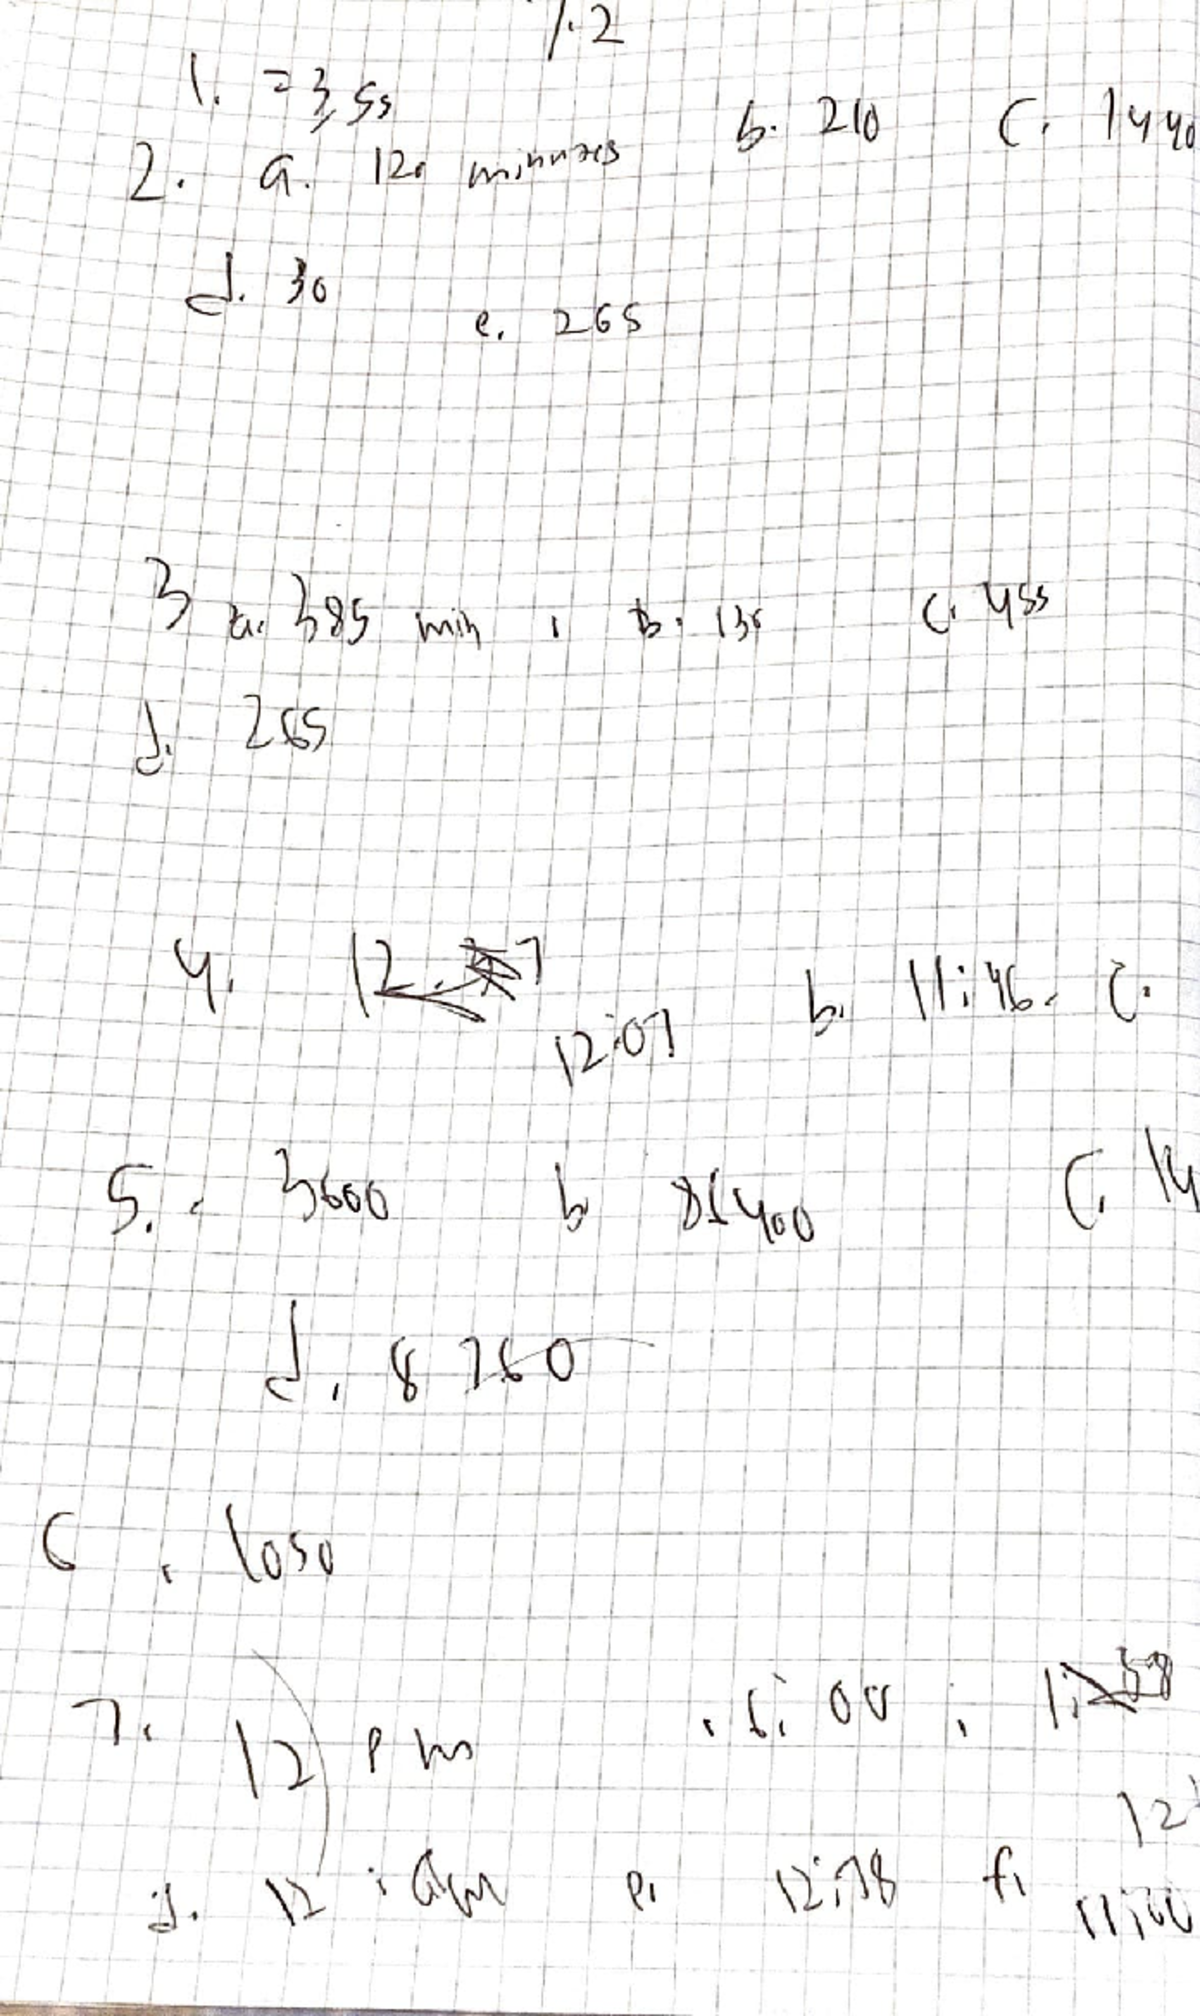 1.2
1. = 3,55
2. a. 120 minutes b. 210 c. 1440
d. 30 e. 265
3 a. 385 min , b. 135 c. 455
d. 265
4. 12:07 b. 11:46. c.
5. 3600 b 86400 c. 14
d. 8760
6. 1050
7. 12 pm . 6:00 ;
12
d. 12 : am e. 12:18 f. 11:00